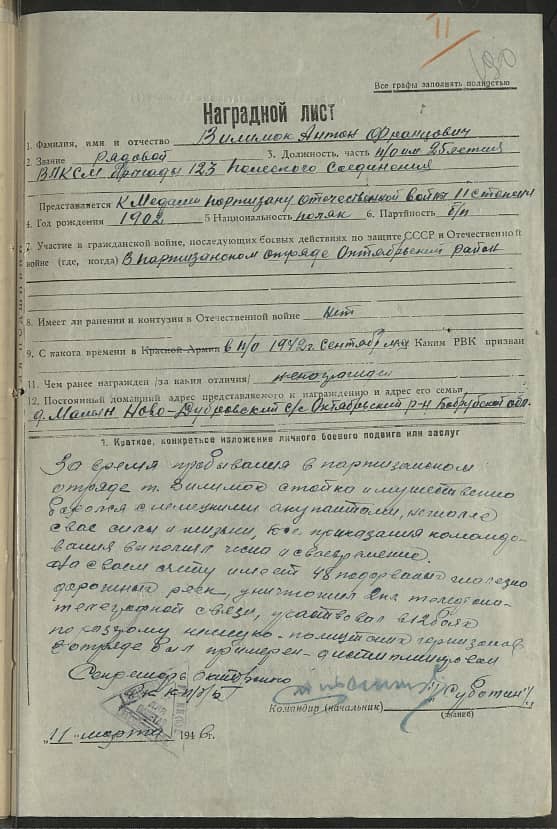 11
130
Все графы заполнять полностью
Наградной лист
1. Фамилия, имя и отчество Вилимок Антон Францович
2. Звание Рядовой 3. Должность, часть п/о им 25 летия
ВЛКСМ бригады 123 Полесского Соединения
Представляется К Медали партизану отечественной войны II степени
4. Год рождения 1902 5 Национальность поляк 6. Партйность б/п
7. Участие в гражданской войне, последующих боевых действиях по защите СССР и Отечественной
войне (где, когда) В партизанском отряде Октябрьский район
8. Имеет ли ранении и контузии в Отечественной войне нет
9. С какота времени в Красной Армии в п/о 1942 г. сентябрь м-ц Каким РВК призван
11. Чем ранее награжден /за какия отличия/
12. Постоянный домашний адрес представляемого к награждению и адрес его семьи
д. Ново-Дубровский с/с Октябрьский р-н Бобруйской обл.
1. Краткое, конкретьсе изложение личного боевого подвига или заслуг
За время пребывания в партизанском
отряде т. Вилимок стойко и мужественно
боролся с немецкими окупантами, не жалея
свое силы и жизни, все приказания командо-
вания выполнял и своевременно.
На своем счету имеет 48 подорваных железно
дорожных рельс, уничтожил 2 км телефоно-
телеграфной связи, участвовал в 12 боях
по разгрому немецко-полицейских гарнизонов
В отряде был примерен - дисциплинирован
Секретарь Октябрьского
РК КП(б)Б /Субботин/
Командир (начальник)
"11" марта 1946 г.